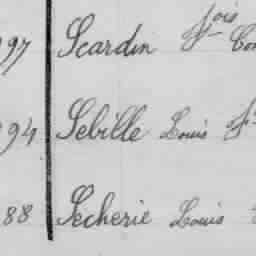 97 Scardin fois
94 Sebille Louis
88 Secherie Louis